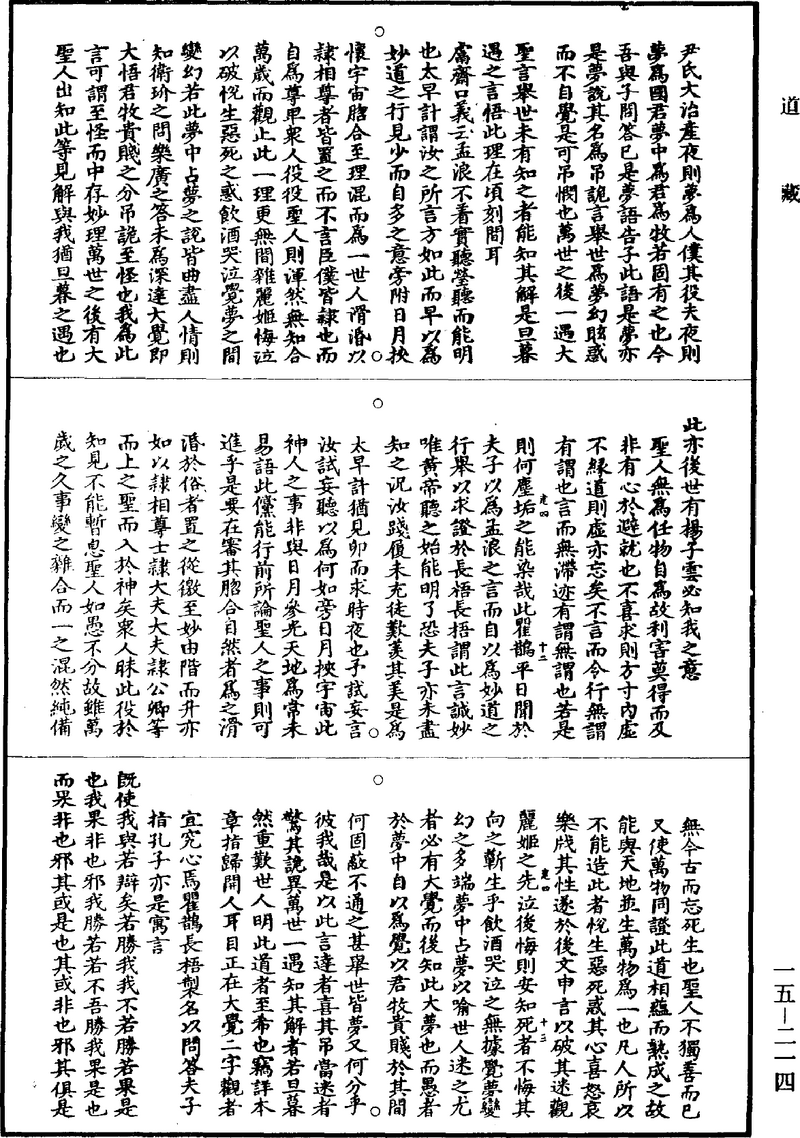 道藏
尹氏大治產夜則夢爲人僕其役夫夜則
夢爲國君夢中爲君爲牧若固有之也今
吾與子問答已是夢語告子此語是夢亦
是夢說其名爲吊詭言舉世爲夢幻眩惑
而不自覺是可吊憫也萬世之後一遇大
聖言舉世未有知之者能知其解是旦暮
遇之言悟此理在頃刻間耳
鬳齋口義云孟浪不着實聽瑩聽而能明
也太早計謂汝之所言方如此而早以爲
妙道之行見少而自多之意旁附日月挾
懷宇宙脗合至理混而爲一世人謂湣以
隷相尊者皆置之而不言臣僕皆隷也而
自爲尊卑衆人役役聖人則渾然無知合
萬歲而觀止此一理更無間雜麗姬悔泣
以破悅生惡死之惑飲酒哭泣覺夢之間
變幻若此夢中占夢之說皆曲盡人情則
知衛玠之問樂廣之答未爲深達大覺即
大悟君牧貴賤之分吊詭至怪也我爲此
言可謂至怪而中存妙理萬世之後有大
聖人出知此等見解與我猶旦暮之遇也
此亦後世有揚子雲必知我之意
聖人無爲任物自爲故利害莫得而及
非有心於避就也不喜求則方寸內虛
不緣道則虛亦忘矣不言而令行無謂
有謂也言而無滯迹有謂無謂也若是
則何塵垢之能染哉此瞿鵲平日聞於
夫子以爲孟浪之言而自以爲妙道之
行舉以求證於長梧長梧謂此言誠妙
唯黄帝聽之始能明了恐夫子亦未盡
知之況汝踐履未充徒歎羨其美是爲
太早計猶見卵而求時夜也予試妄言
汝試妄聽以爲何如旁日月挾宇宙此
神人之事非與日月參光天地爲常未
易語此儻能行前所論聖人之事則可
進乎是要在審其脗合自然者爲之滑
湣於俗者置之從微至妙由階而升亦
如以隷相尊士隷大夫大夫隷公卿等
而上之聖而入於神矣衆人昧此役於
知見不能暫息聖人如愚不分故雖萬
歲之久事變之雜合而一之混然純備
無今古而忘死生也聖人不獨善而已
又使萬物同證此道相蘊而熟成之故
能與天地並生萬物爲一也凡人所以
不能造此者悅生惡死惑其心喜怒哀
樂戕其性遂於後文申言以破其迷觀
麗姬之先泣後悔則安知死者不悔其
向之蘄生乎飲酒哭泣之無據覺夢變
幻之多端夢中占夢以喻世人迷之尤
者必有大覺而後知此大夢也而愚者
於夢中自以爲覺以君牧貴賤於其間
何固蔽不通之甚舉世皆夢又何分乎
彼我哉是以此言達者喜其吊當迷者
驚其詭異萬世一遇知其解者若旦暮
然重歎世人明此道者至希也竊詳本
章指歸開人耳目正在大覺二字觀者
宜究心焉瞿鵲長梧製名以問答夫子
指孔子亦是寓言
既使我與若辯矣若勝我我不若勝若果是
也我果非也邪我勝若若不吾勝我果是也
而果非也邪其或是也其或非也邪其俱是
一五－二一四